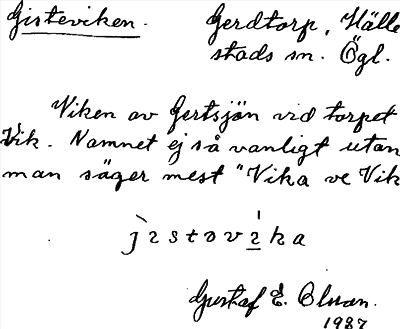 Gisteviken. Gerdtorp, Hälle
stads sn. Ögl.
Viken av Gertsjön vid torpet
Vik. Namnet ej så vanligt utan
man säger mest "Vika ve Vik
Gustaf E. Olsson.
1987